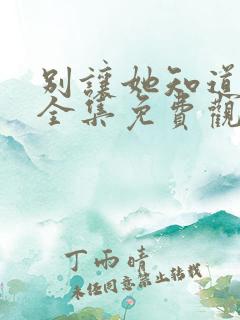 別讓她知道
全集免費觀
丁雨晴
未经同意禁止转载